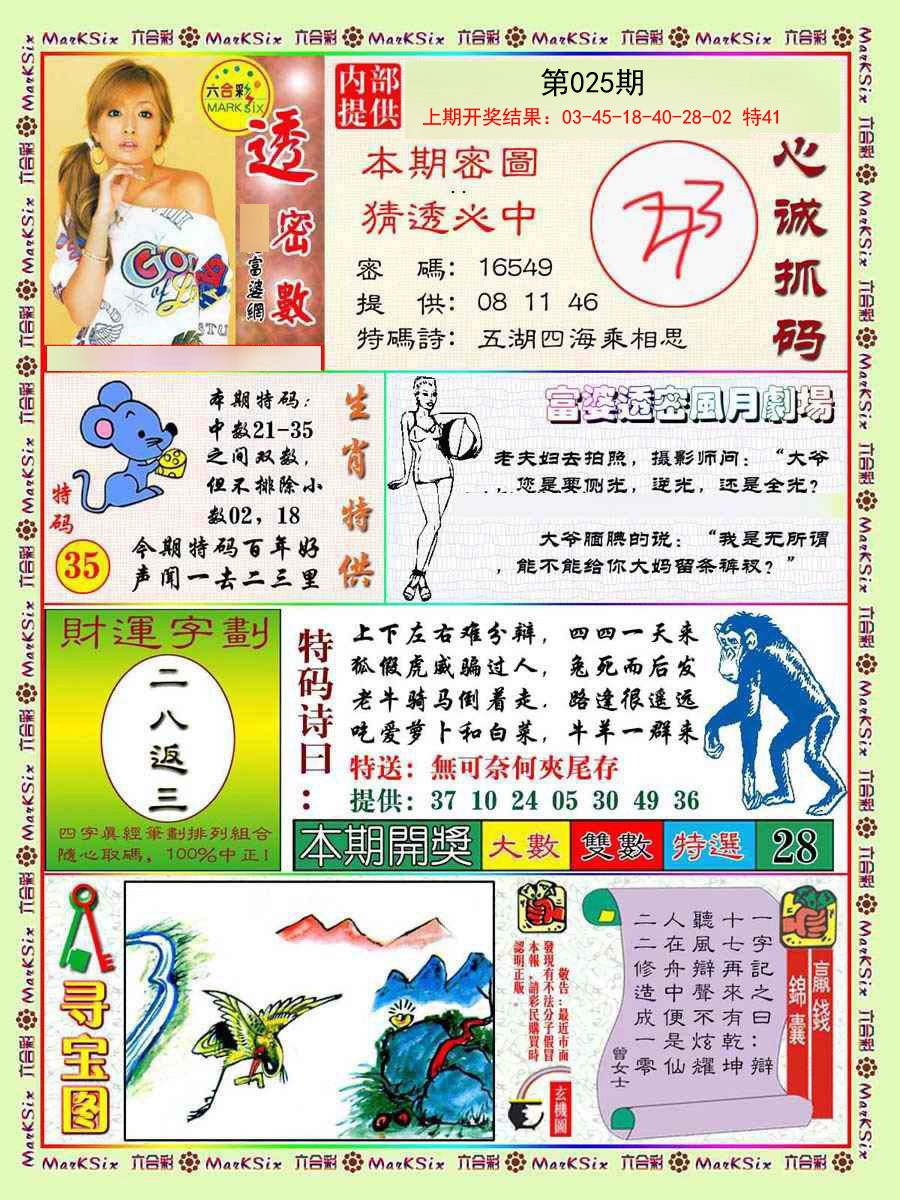 MarKSix 六合彩 MarKSix 六合彩 MarKSix 六合彩 MarKSix 六合彩 MarKSix 六合彩
六合彩
MARK six
透密數
富婆網
内部提供
第025期
上期开奖结果：03-45-18-40-28-02 特41
本期密圖
猜透必中
密 碼：16549
提 供：08 11 46
特碼詩：五湖四海乘相思
心诚抓码
本期特码：
中数21-35
之间双数，
但不排除小
数02，18
今期特码百年好
声闻一去二三里
特码
35
生肖特供
富婆透密風月劇場
老夫妇去拍照，摄影师问：“大爷
，您是要侧光，逆光，还是全光？
大爷腼腆的说：“我是无所谓
，能不能给你大妈留条裤衩？”
財運字劃
二八返三
四字真經筆劃排列組合
隨心取碼，100%中正！
特码诗曰：
上下左右难分辩，四四一天来
狐假虎威骗过人，兔死而后发
老牛骑马倒着走．路逢很遥远
吃爱萝卜和白菜，牛羊一群来
特送：無可奈何夾尾存
提供：37 10 24 05 30 49 36
本期開獎 大數 雙數 特選 28
寻宝图
敬告：最近市面
發現有不法分子假冒
本報，請彩民購買時
認明正版。
玄機圖
贏錢錦囊
一字記之曰：辯
十七再來有乾坤
聽風辯聲不炫耀
人在舟中便是仙
二二修造成一零
曾女士
MarKSix 六合彩 MarKSix 六合彩 MarKSix 六合彩 MarKSix 六合彩 MarKSix 六合彩